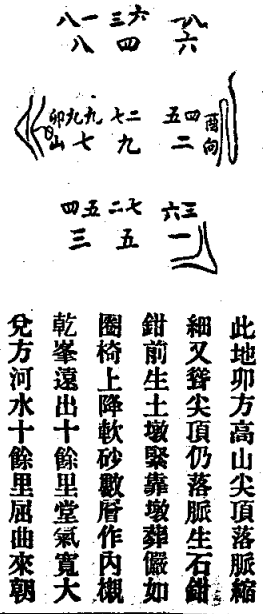 八一 三六 一八
八 四 六
卯山 九九 七二 五四 酉向
七 九 二
四五 二七 六三
三 五 一
此地卯方高山尖頂落脈縮
細又聳尖頂仍落脈生石鉗
鉗前生土墩緊靠墩葬儼如
圈椅上降軟砂數層作內櫬
乾峯遠出十餘里堂氣寬大
兌方河水十餘里屈曲來朝